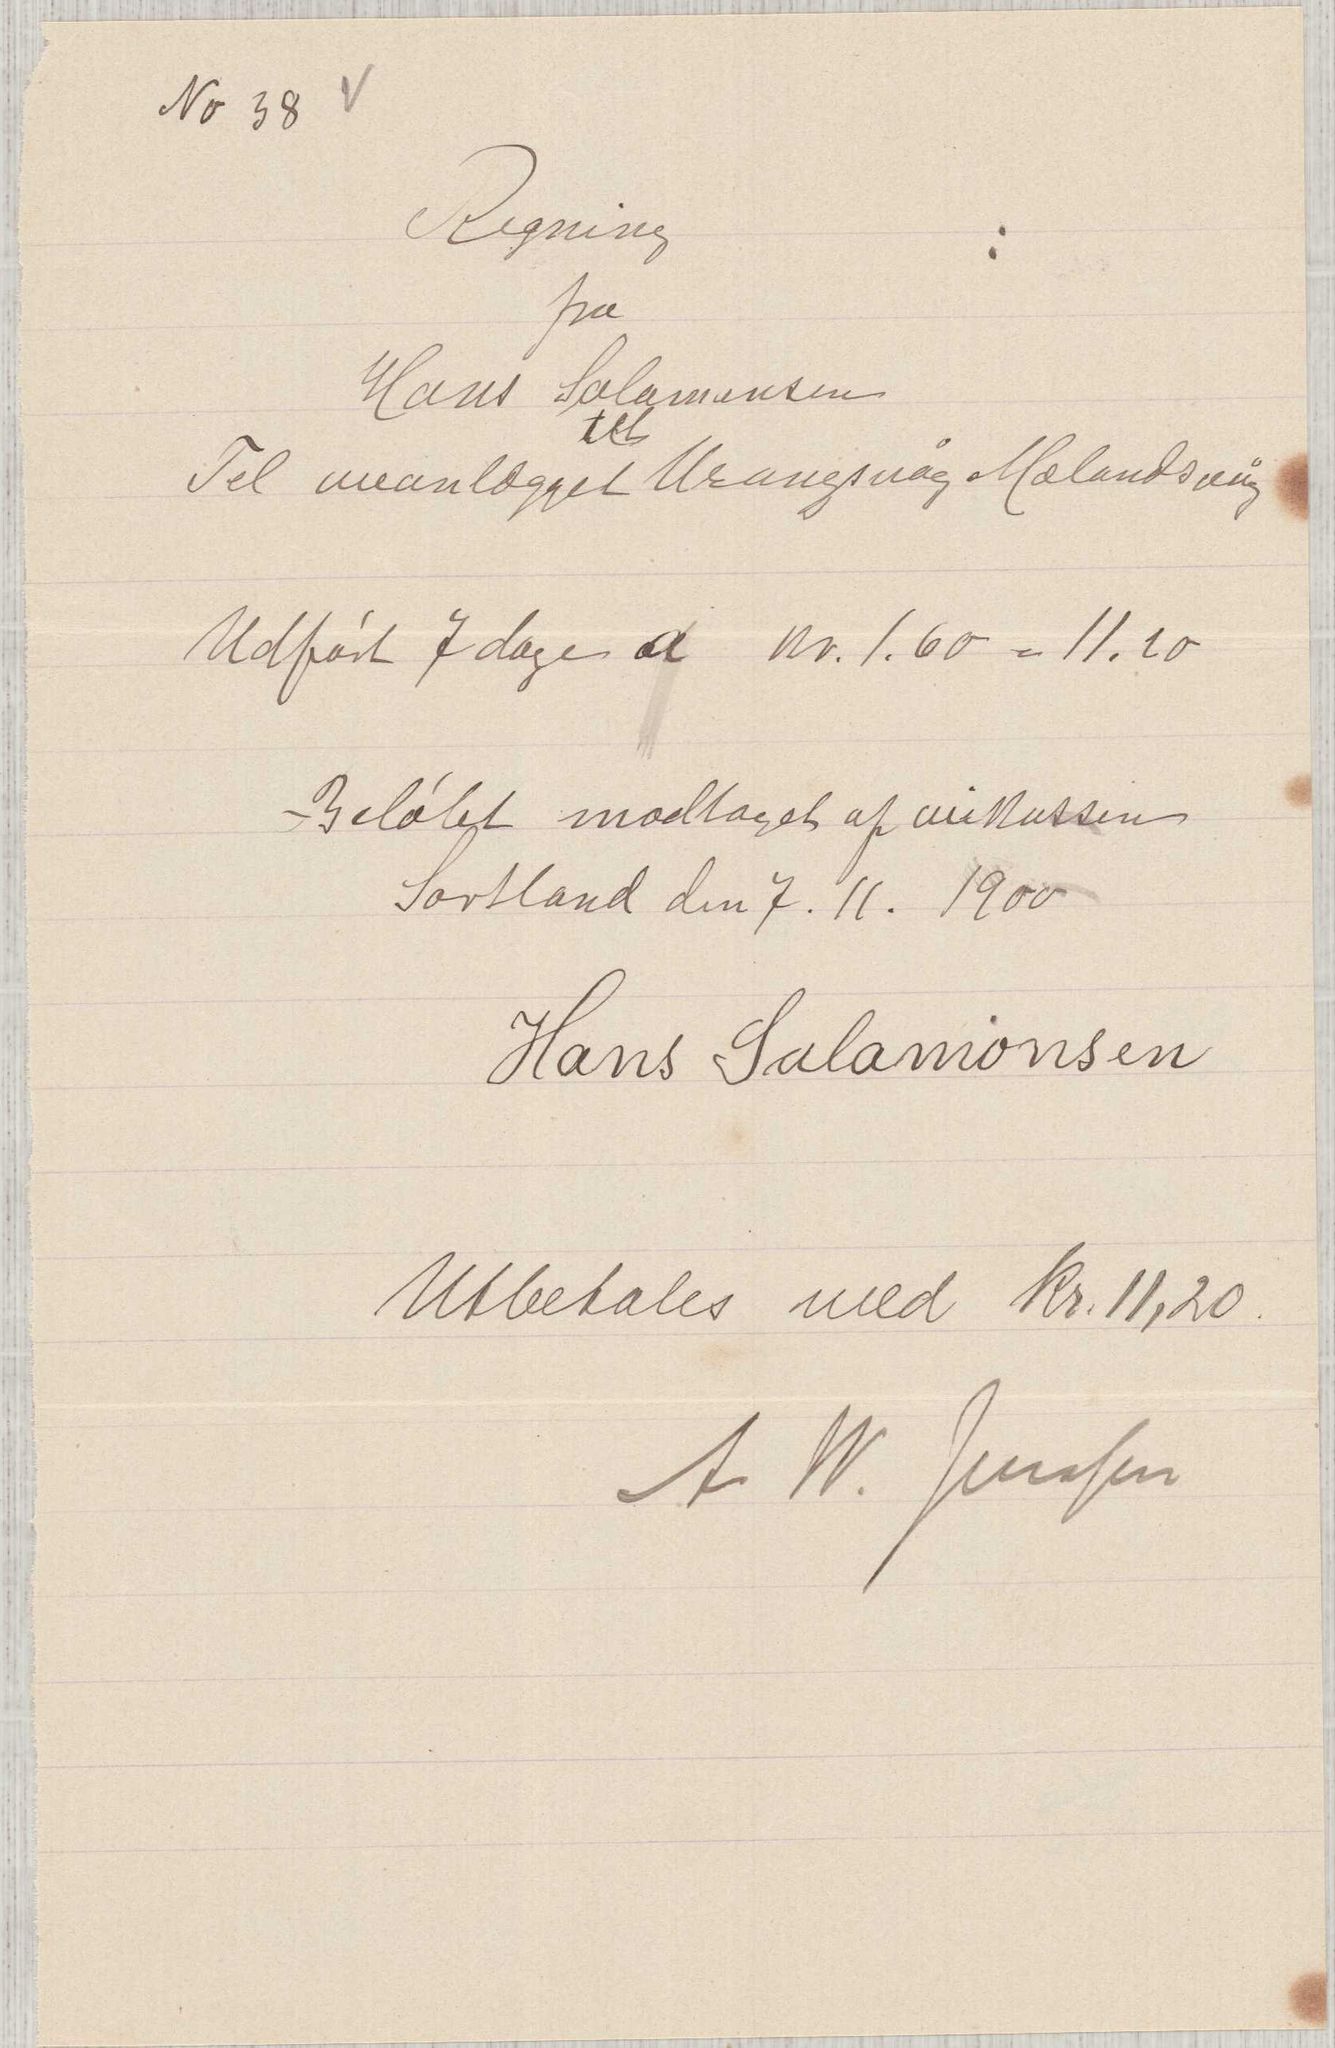 No 38 V
Regning
fra
Hans Salamonsen
til
Til veianlægget Vrangsvåg Mælandsvåg
Udført 7 dage a kr. 1.60 = 11.20
Beløbet modtaget af veikassen
Sortland den 7. 11. 1900
Hans Salamonsen
Utbetales med kr. 11,20.
A W. Jenssen